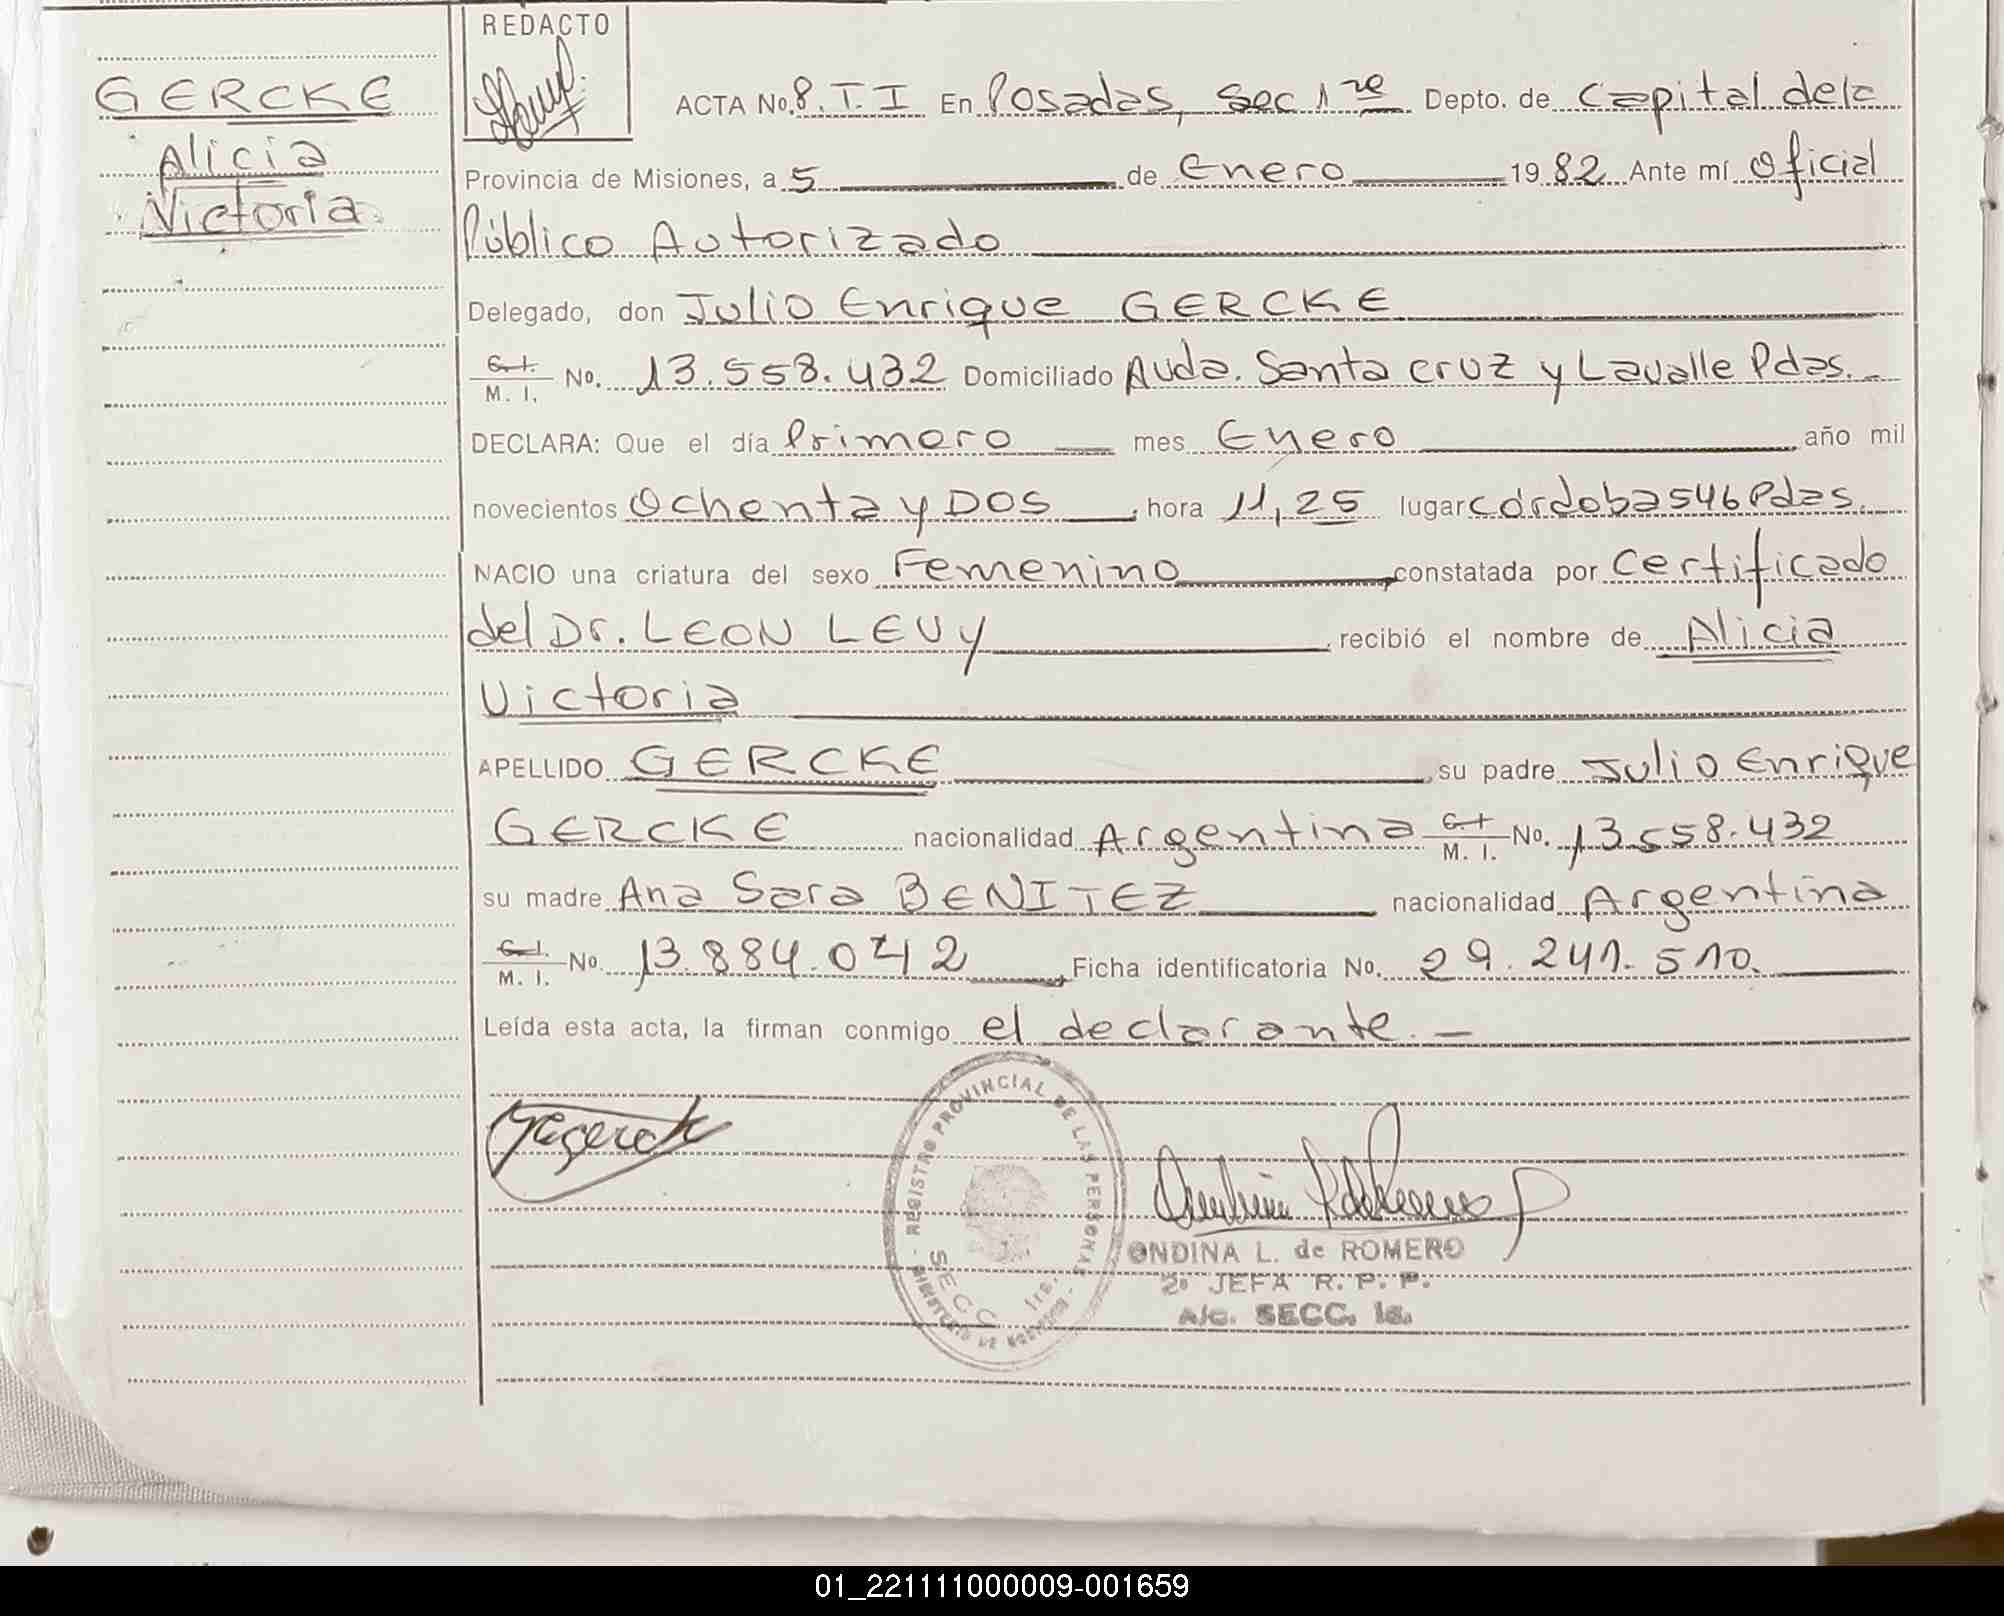 REDACTO
GERCKE
Alicia
Victoria
ACTA No. 8. T. I En Posadas, Sec 1ra Depto. de Capital dela
Provincia de Misiones, a 5 de Enero 1982 Ante mí Oficial
Público Autorizado
Delegado, don Julio Enrique GERCKE
C.I. / M. I. No. 13.558.432 Domiciliado Avda. Santa cruz y Lavalle Pdas.
DECLARA: Que el día Primero mes Enero año mil
novecientos Ochenta y DOS, hora 11,25 lugar córdoba 546 Pdas.
NACIO una criatura del sexo Femenino, constatada por certificado
del Dr. LEON LEVY, recibió el nombre de Alicia
Victoria
APELLIDO GERCKE, su padre Julio Enrique
GERCKE nacionalidad Argentina C.I. / M. I. No. 13.558.432
su madre Ana Sara BENITEZ nacionalidad Argentina
C.I. / M. I. No. 13.884.042, Ficha identificatoria No. 29.241.510.
Leída esta acta, la firman conmigo el declarante.-
REGISTRO PROVINCIAL DE LAS PERSONAS
SECC 1ra.
ONDINA L. de ROMERO
2º JEFA R. P. P.
A/C. SECC. 1a.
01_221111000009-001659